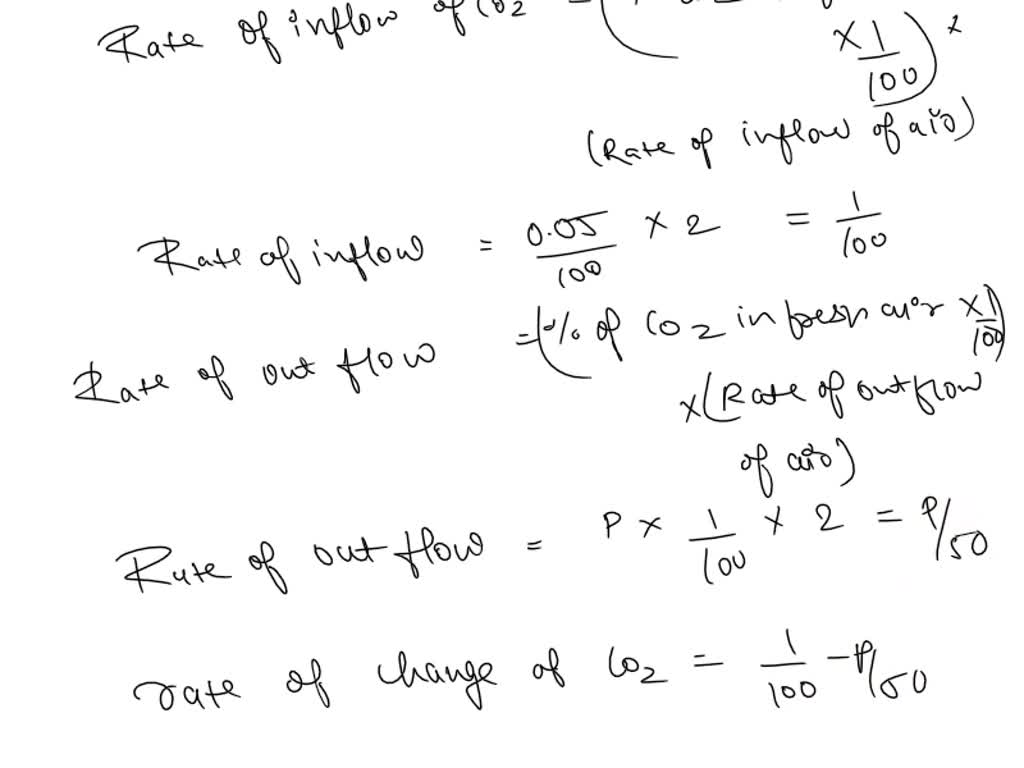 Rate of inflow of CO2 = (
× 1/100) ×
(Rate of inflow of air)
Rate of inflow = 0.05/100 × 2 = 1/100
Rate of out flow = (% of CO2 in fresh air × 1/100)
×(Rate of outflow
of air)
Rate of out flow = P × 1/100 × 2 = P/50
rate of change of CO2 = 1/100 - P/50